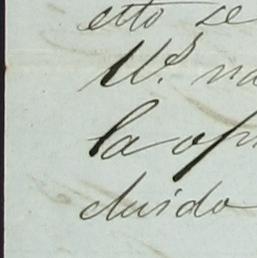 etto se
V.s na
la op
cluido